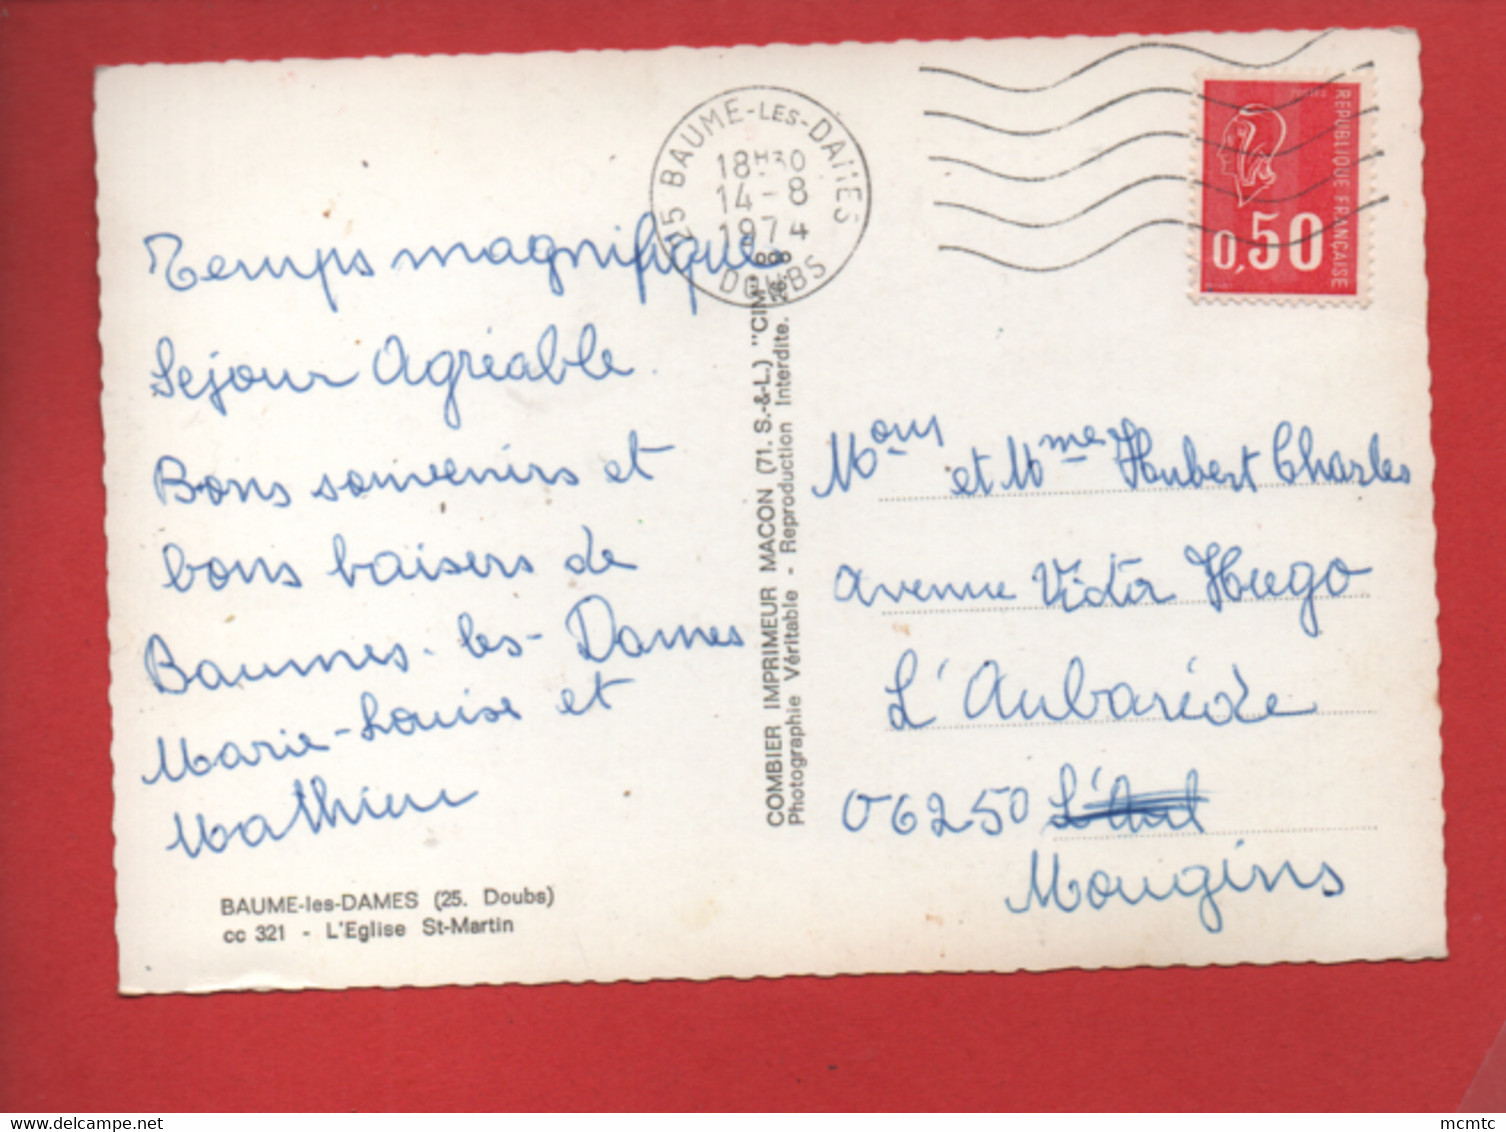 Temps magnifique
Séjour Agréable.
Bons souvenirs et
bons baisers de
Baumes-les-Dames
Marie-Louise et
Mathieu
BAUME-les-DAMES (25. Doubs)
cc 321 - L'Eglise St-Martin
COMBIER IMPRIMEUR MACON (71. S.-&-L.) "CIM"
Photographie Véritable - Reproduction Interdite.
25 BAUME-LES-DAMES
18H30
14-8
1974
DOUBS
POSTES
REPUBLIQUE FRANÇAISE
0,50
Mons et Mme Hubert Charles
Avenue Victor Hugo
L'Aubarède
06250
Mougins
mcmtc